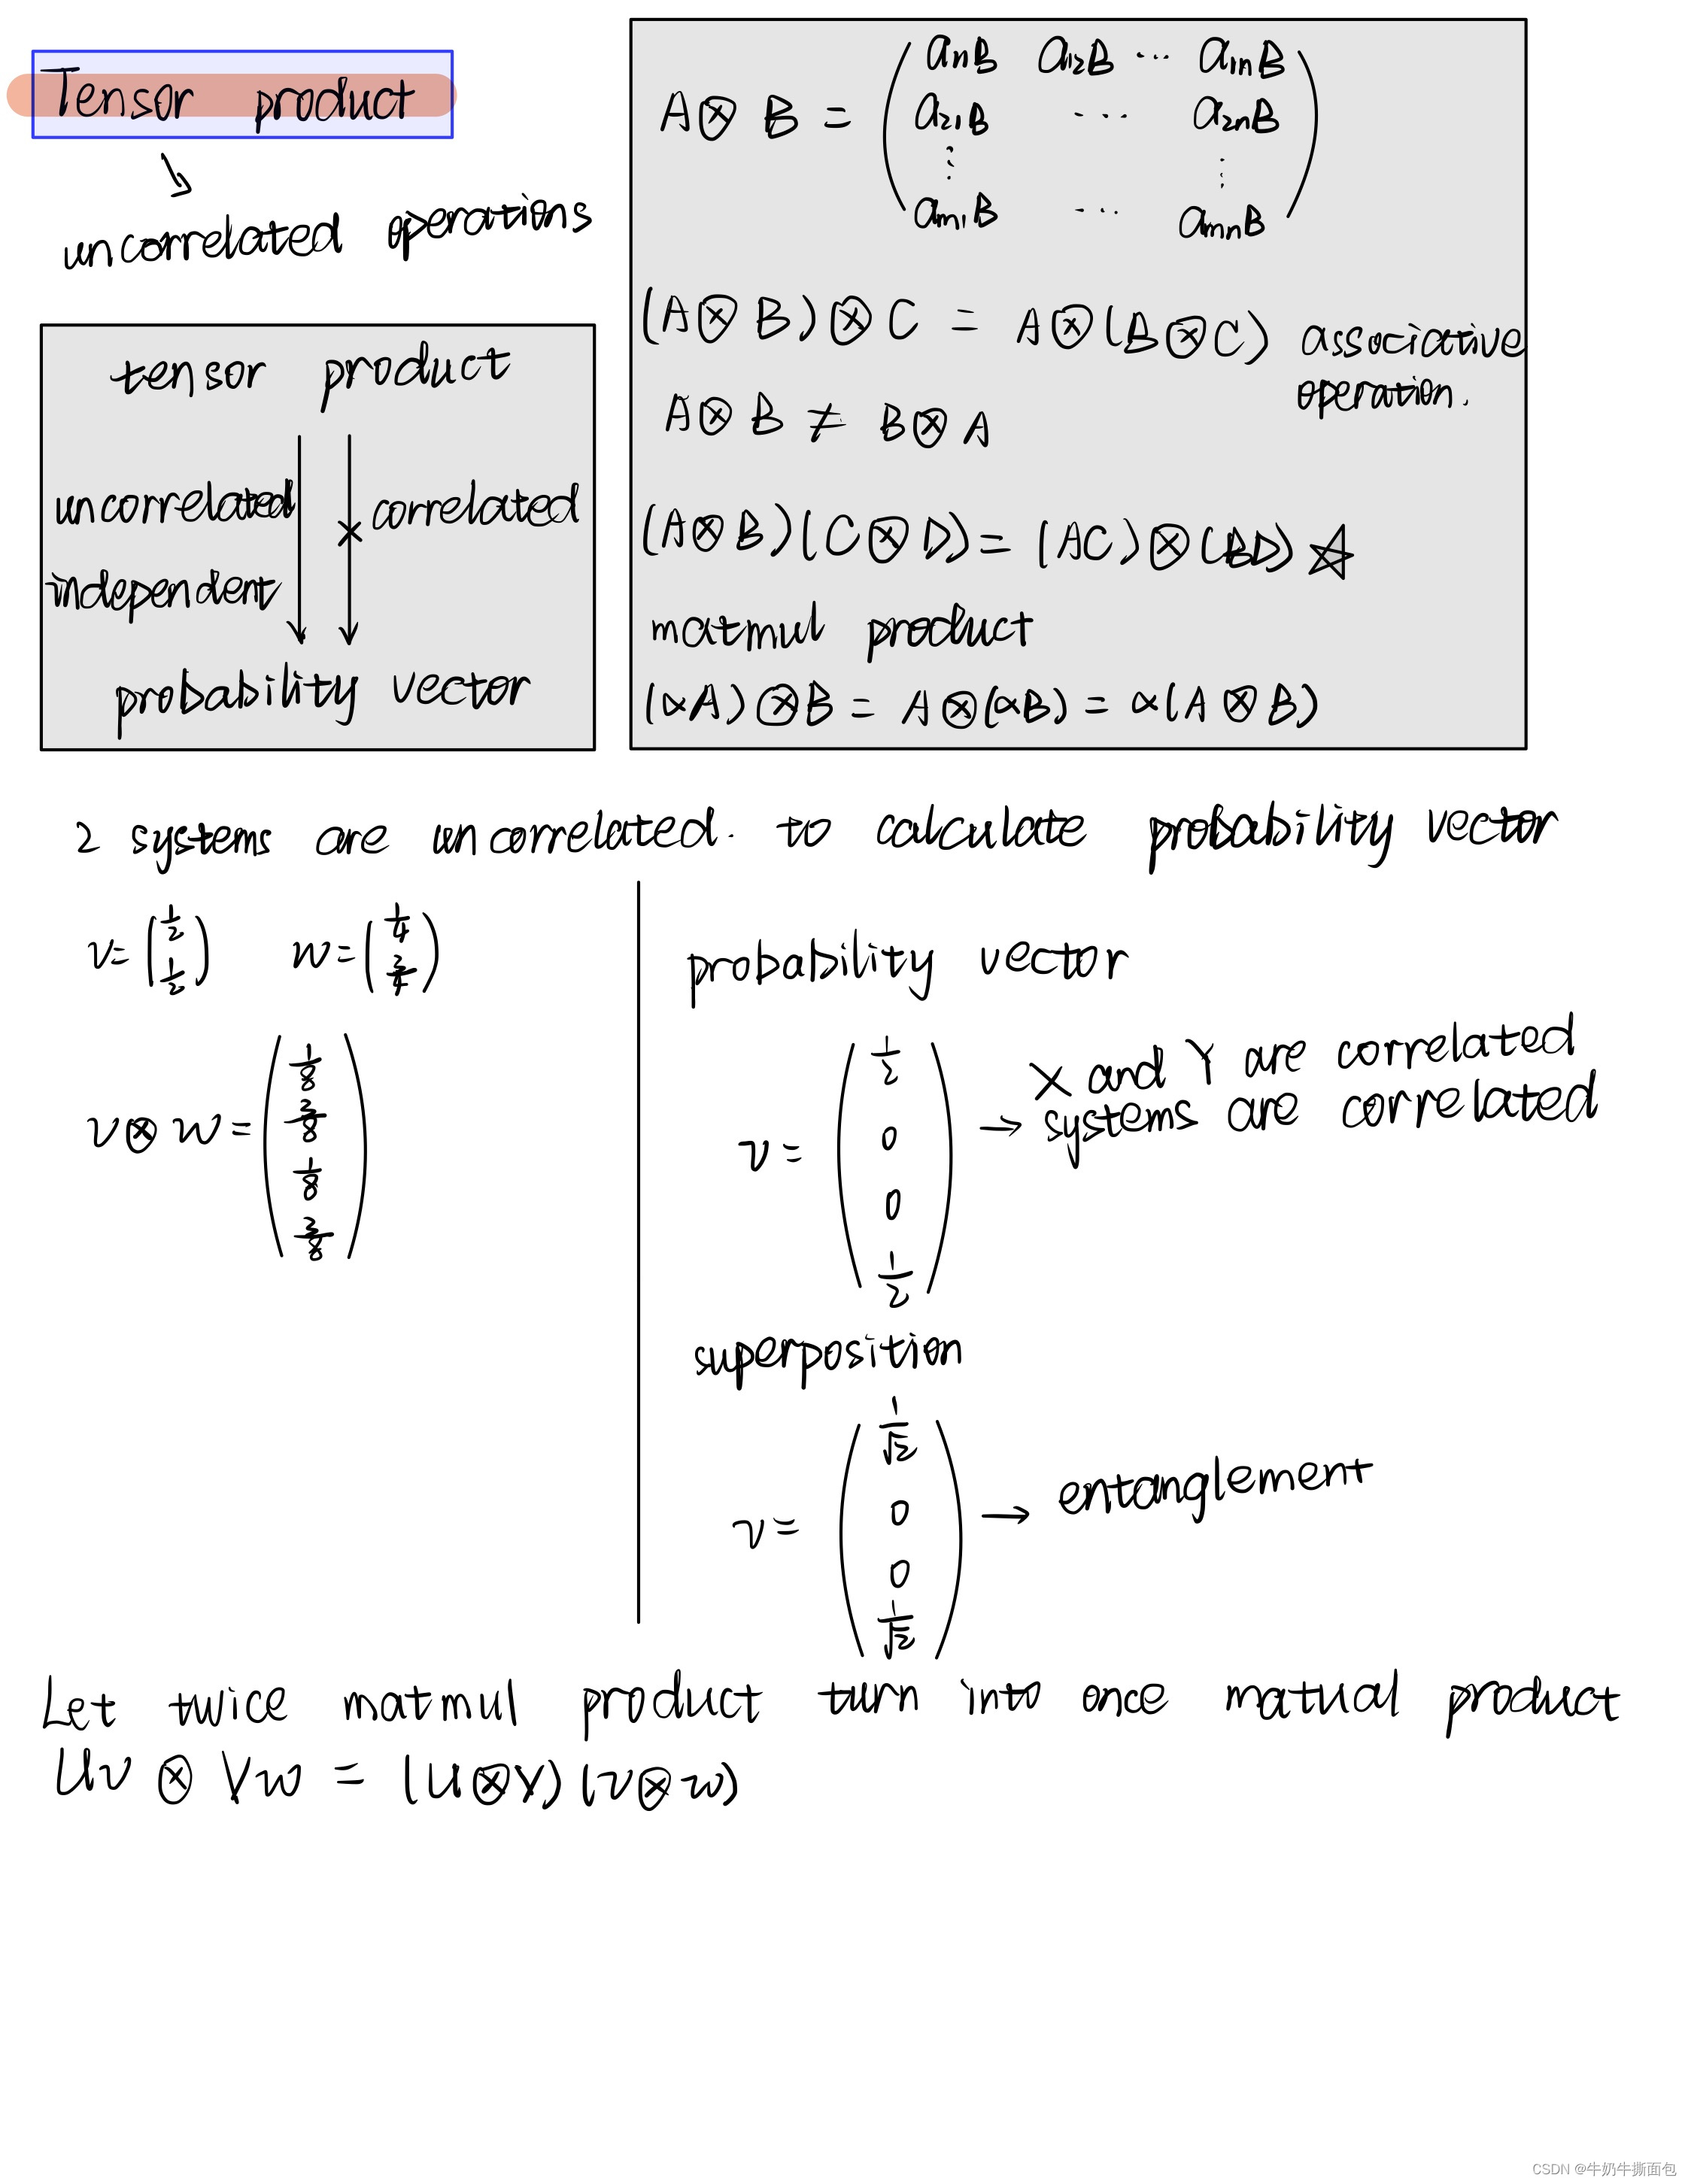 Tensor product
uncorrelated operations
tensor product
uncorrelated
correlated
independent
probability vector
A⊗B = (a₁₁B a₁₂B ⋯ a₁ₙB
a₂₁B ⋯ a₂ₙB
⋮ ⋮
aₘ₁B ⋯ aₘₙB)
(A⊗B)⊗C = A⊗(B⊗C) associative
operation.
A⊗B ≠ B⊗A
(A⊗B)(C⊗D) = (AC)⊗(BD) ☆
matmul product
(αA)⊗B = A⊗(αB) = α(A⊗B)
2 systems are uncorrelated. to calculate probability vector
v = (1/2 1/2) w = (1/4 3/4)
v⊗w = (1/8 3/8 1/8 3/8)
probability vector
v = (1/2 0 0 1/2) → X and Y are correlated
systems are correlated
superposition
v = (1/√2 0 0 1/√2) → entanglement
Let twice matmul product turn into once matual product
Uv ⊗ Vw = (U⊗V)(v⊗w)
CSDN @牛奶牛撕面包